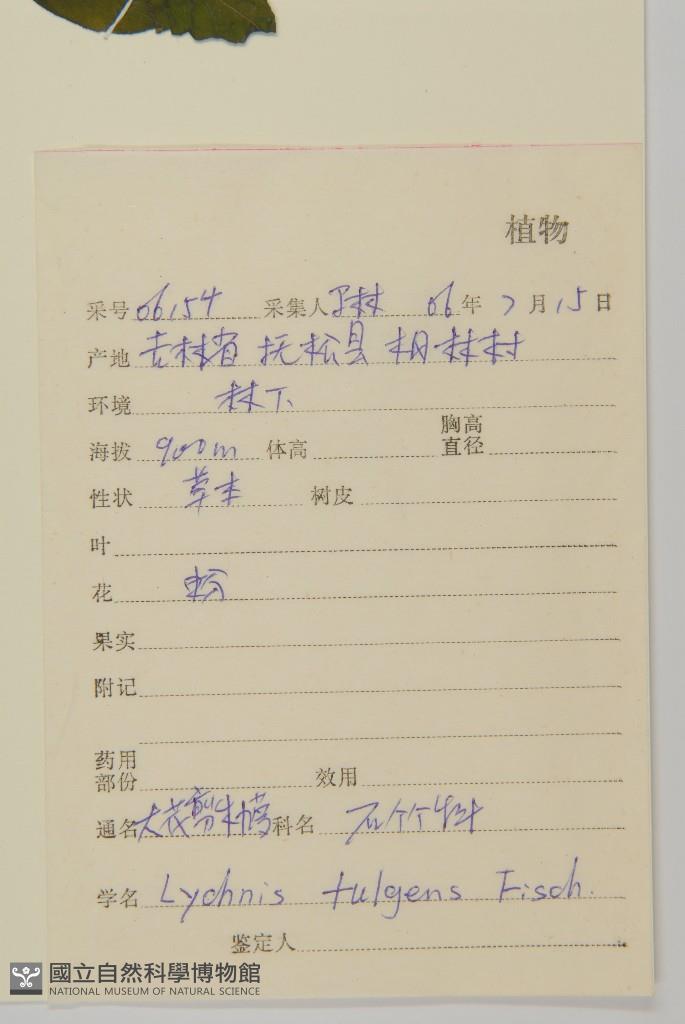 植物
采号 06154 采集人 林 06年 7月 15日
产地 吉林省 抚松县 林村
环境 林下
胸高
海拔 900m 体高 直径
性状 草本 树皮
叶
花 粉
果实
附记
药用
部份 效用
通名 大花剪秋萝 科名 石竹科
学名 Lychnis fulgens Fisch.
鉴定人
國立自然科學博物館
NATIONAL MUSEUM OF NATURAL SCIENCE